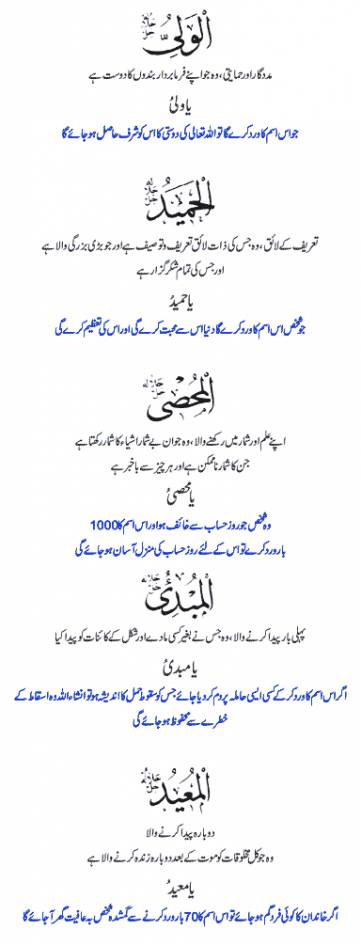 الْوَلِيُّ جل جلالہ
مددگار اور حمایتی، وہ جو اپنے فرمابردار بندوں کا دوست ہے
یا ولیُ
جو اس اسم کا ورد کرے گا تو اللہ تعالی کی دوستی کا اس کو شرف حاصل ہو جائے گا
الْحَمِيدُ جل جلالہ
تعریف کے لائق، وہ جس کی ذات لائق تعریف و توصیف ہے اور جو بڑی بزرگی والا ہے
اور جس کی تمام شکر گزار ہے
یا حمیدُ
جو شخص اس اسم کا ورد کرے گا دنیا اس سے محبت کرے گی اور اس کی تعظیم کرے گی
الْمُحْصِي جل جلالہ
اپنے علم اور شمار میں رکھنے والا، وہ جو ان بے شمار اشیاء کا شمار رکھتا ہے
جن کا شمار ناممکن ہے اور ہر چیز سے باخبر ہے
یا محصیُ
وہ شخص جو روز حساب سے خائف ہو اور اس اسم کا 1000
بار ورد کرے تو اس کے لئے روز حساب کی منزل آسان ہو جائے گی
الْمُبْدِئُ جل جلالہ
پہلی بار پیدا کرنے والا، وہ جس نے بغیر کسی مادے اور شکل کے کائنات کو پیدا کیا
یا مبدیُ
اگر اس اسم کا ورد کر کے کسی ایسی حاملہ پر دم کر دیا جائے جس کو سقوط حمل کا اندیشہ ہو تو انشاء اللہ وہ اسقاط کے
خطرے سے محفوظ ہو جائے گی
الْمُعِيدُ جل جلالہ
دوبارہ پیدا کرنے والا
وہ جو کل مخلوقات کو موت کے بعد دوبارہ زندہ کرنے والا ہے
یا معیدُ
اگر خاندان کا کوئی فرد گم ہو جائے تو اس اسم کا 70 بار ورد کرنے سے گمشدہ شخص بہ عافیت گھر آ جائے گا